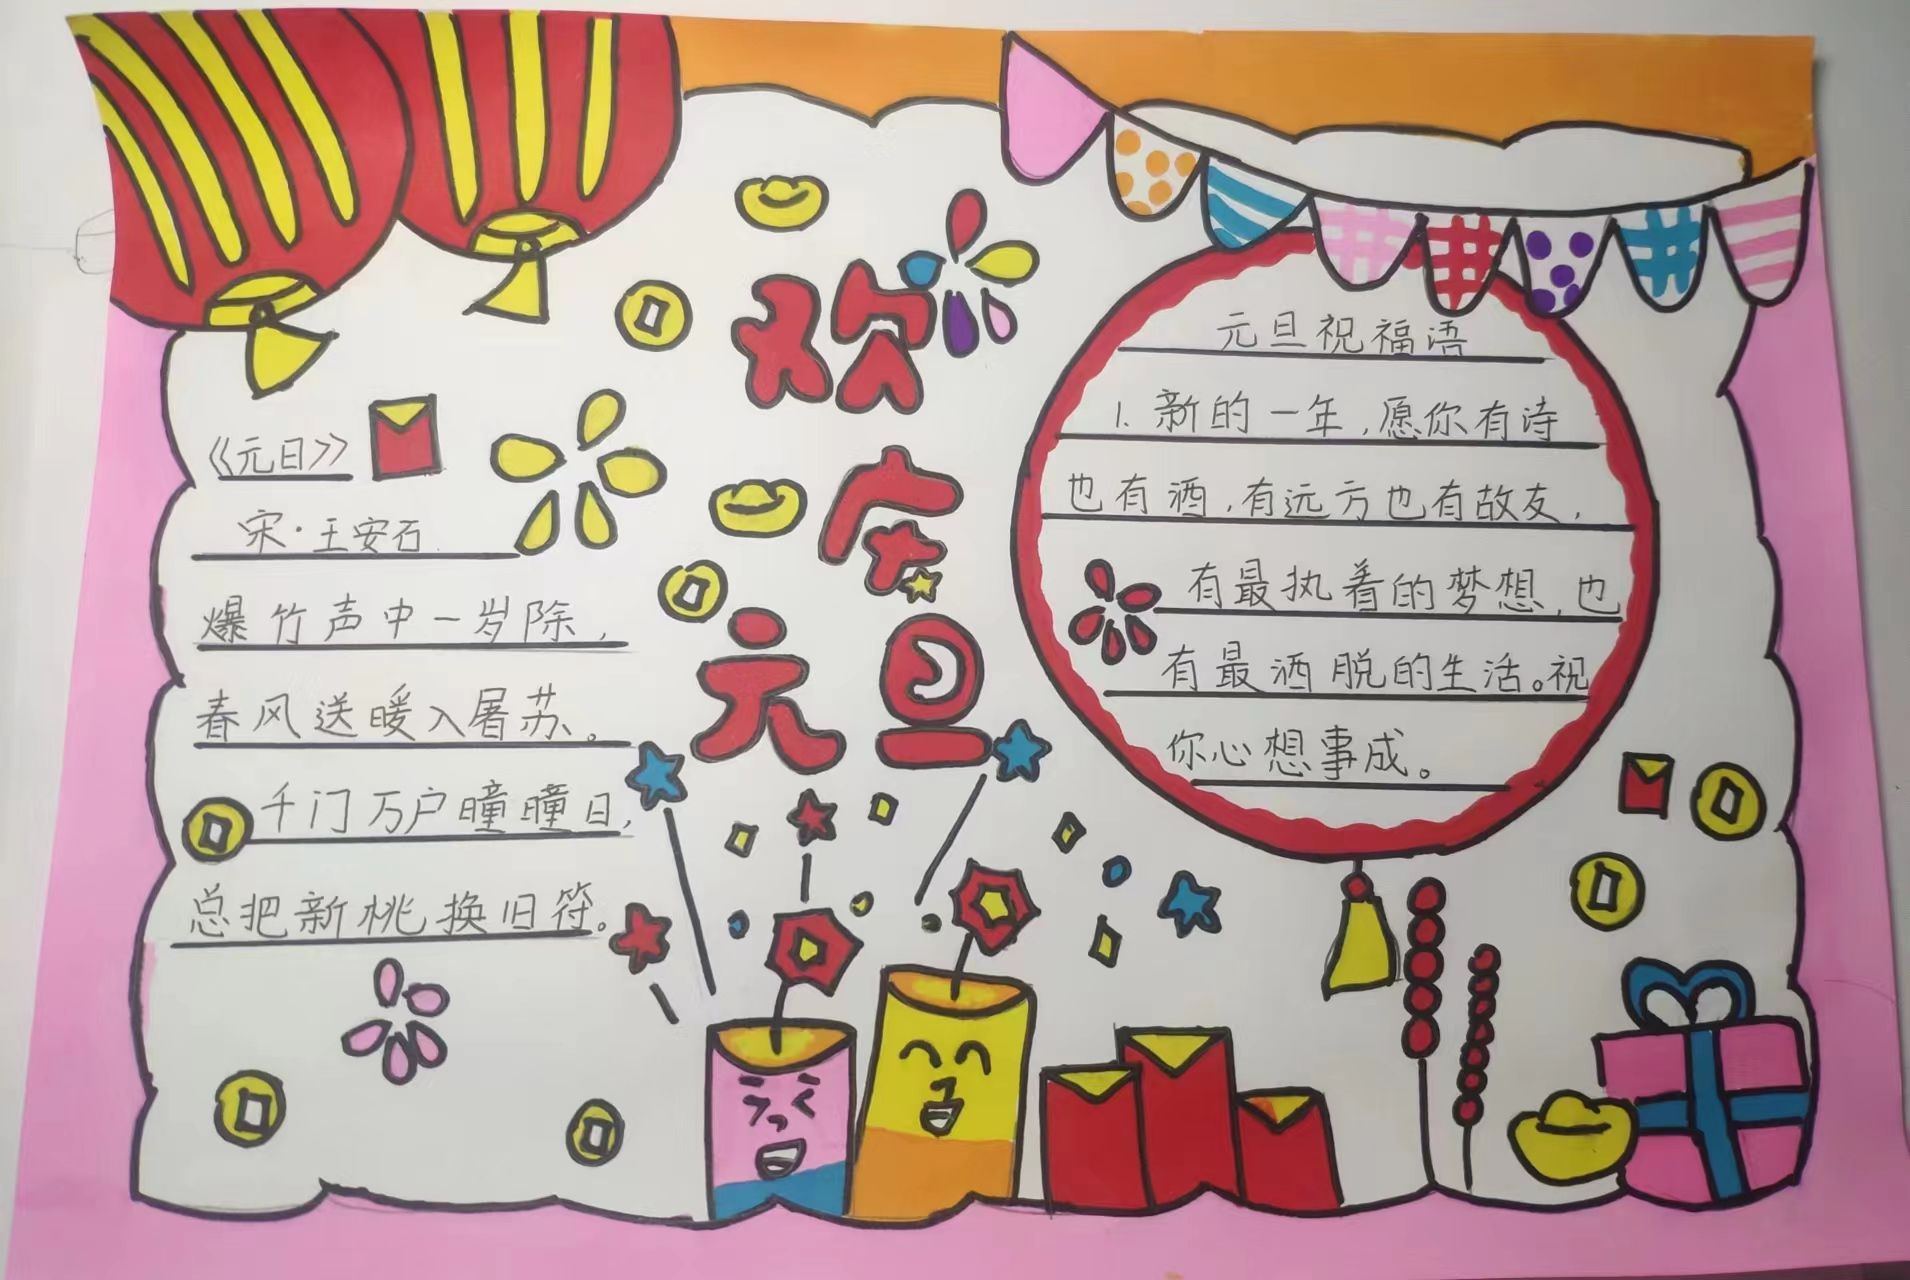 《元日》
宋·王安石
爆竹声中一岁除，
春风送暖入屠苏。
千门万户曈曈日，
总把新桃换旧符。
欢
庆
元旦
元旦祝福语
1.新的一年，愿你有诗
也有酒，有远方也有故友，
有最执着的梦想，也
有最洒脱的生活。祝
你心想事成。